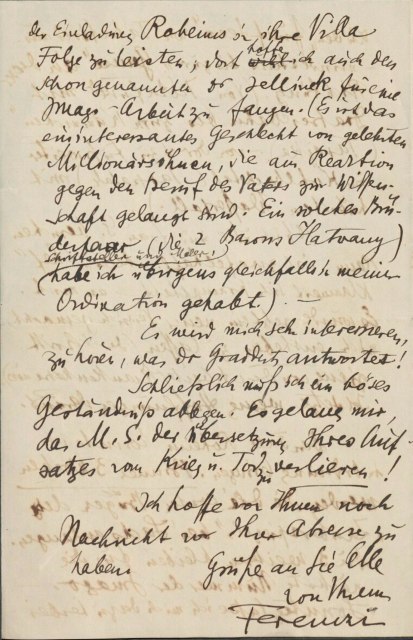 der Einladung Roheims in ihre Villa
Folge zu leisten, dort hoffe ich auch den
schon genannten Dr Jellinek für eine
Imago-Arbeit zu fangen. (Es ist das
ein interessantes Geschlecht von gelehrten
Millionärssöhnen, die aus Reaktion
gegen den Beruf des Vaters zur Wissen-
schaft gelangt sind. Ein solches Brü-
derpaar (die 2 Barons Hatvany)
Schriftsteller und Maler
habe ich übrigens gleichfalls in meiner
Ordination gehabt). —
Es wird mich sehr interessieren,
zu hören, was Dr antwortet!
Schließlich muß ich ein böses
Geständniß ablegen. Es gelang mir,
das M.S. der Übersetzung Ihres Auf-
satzes vom Krieg u. Tod zu verlieren!
Ich hoffe von Ihnen noch
Nachricht vor Ihrer Abreise zu
haben. Grüße an Sie Alle
von Ihrem
Ferenczi